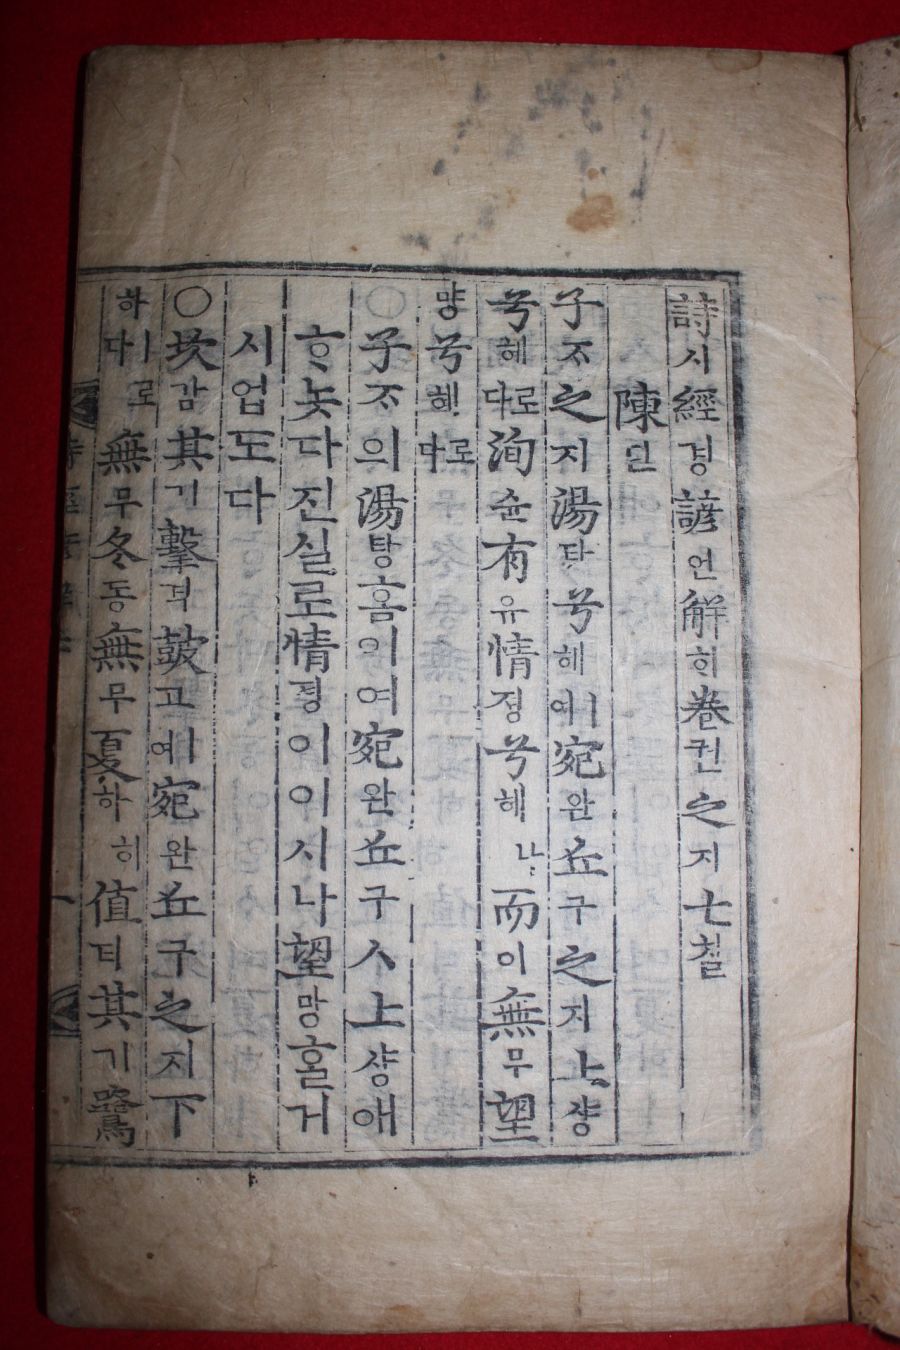 詩시經경諺언解ᄒᆡ卷권之지七칠
陳딘
子ᄌᆞ之지湯탕兮혜ㅣ여宛완丘구之지上샹
兮혜로다洵슌有유情졍兮혜나而이無무望
망兮혜로다
○子ᄌᆞ의湯탕홈이여宛완丘구ㅅ上샹애
ᄒᆞ놋다진실로情졍이이시나望망홀거
시업도다
○坎감其기擊격鼓고ㅣ여宛완丘구之지下
하ㅣ로다無무冬동無무夏하히値티其기鷺